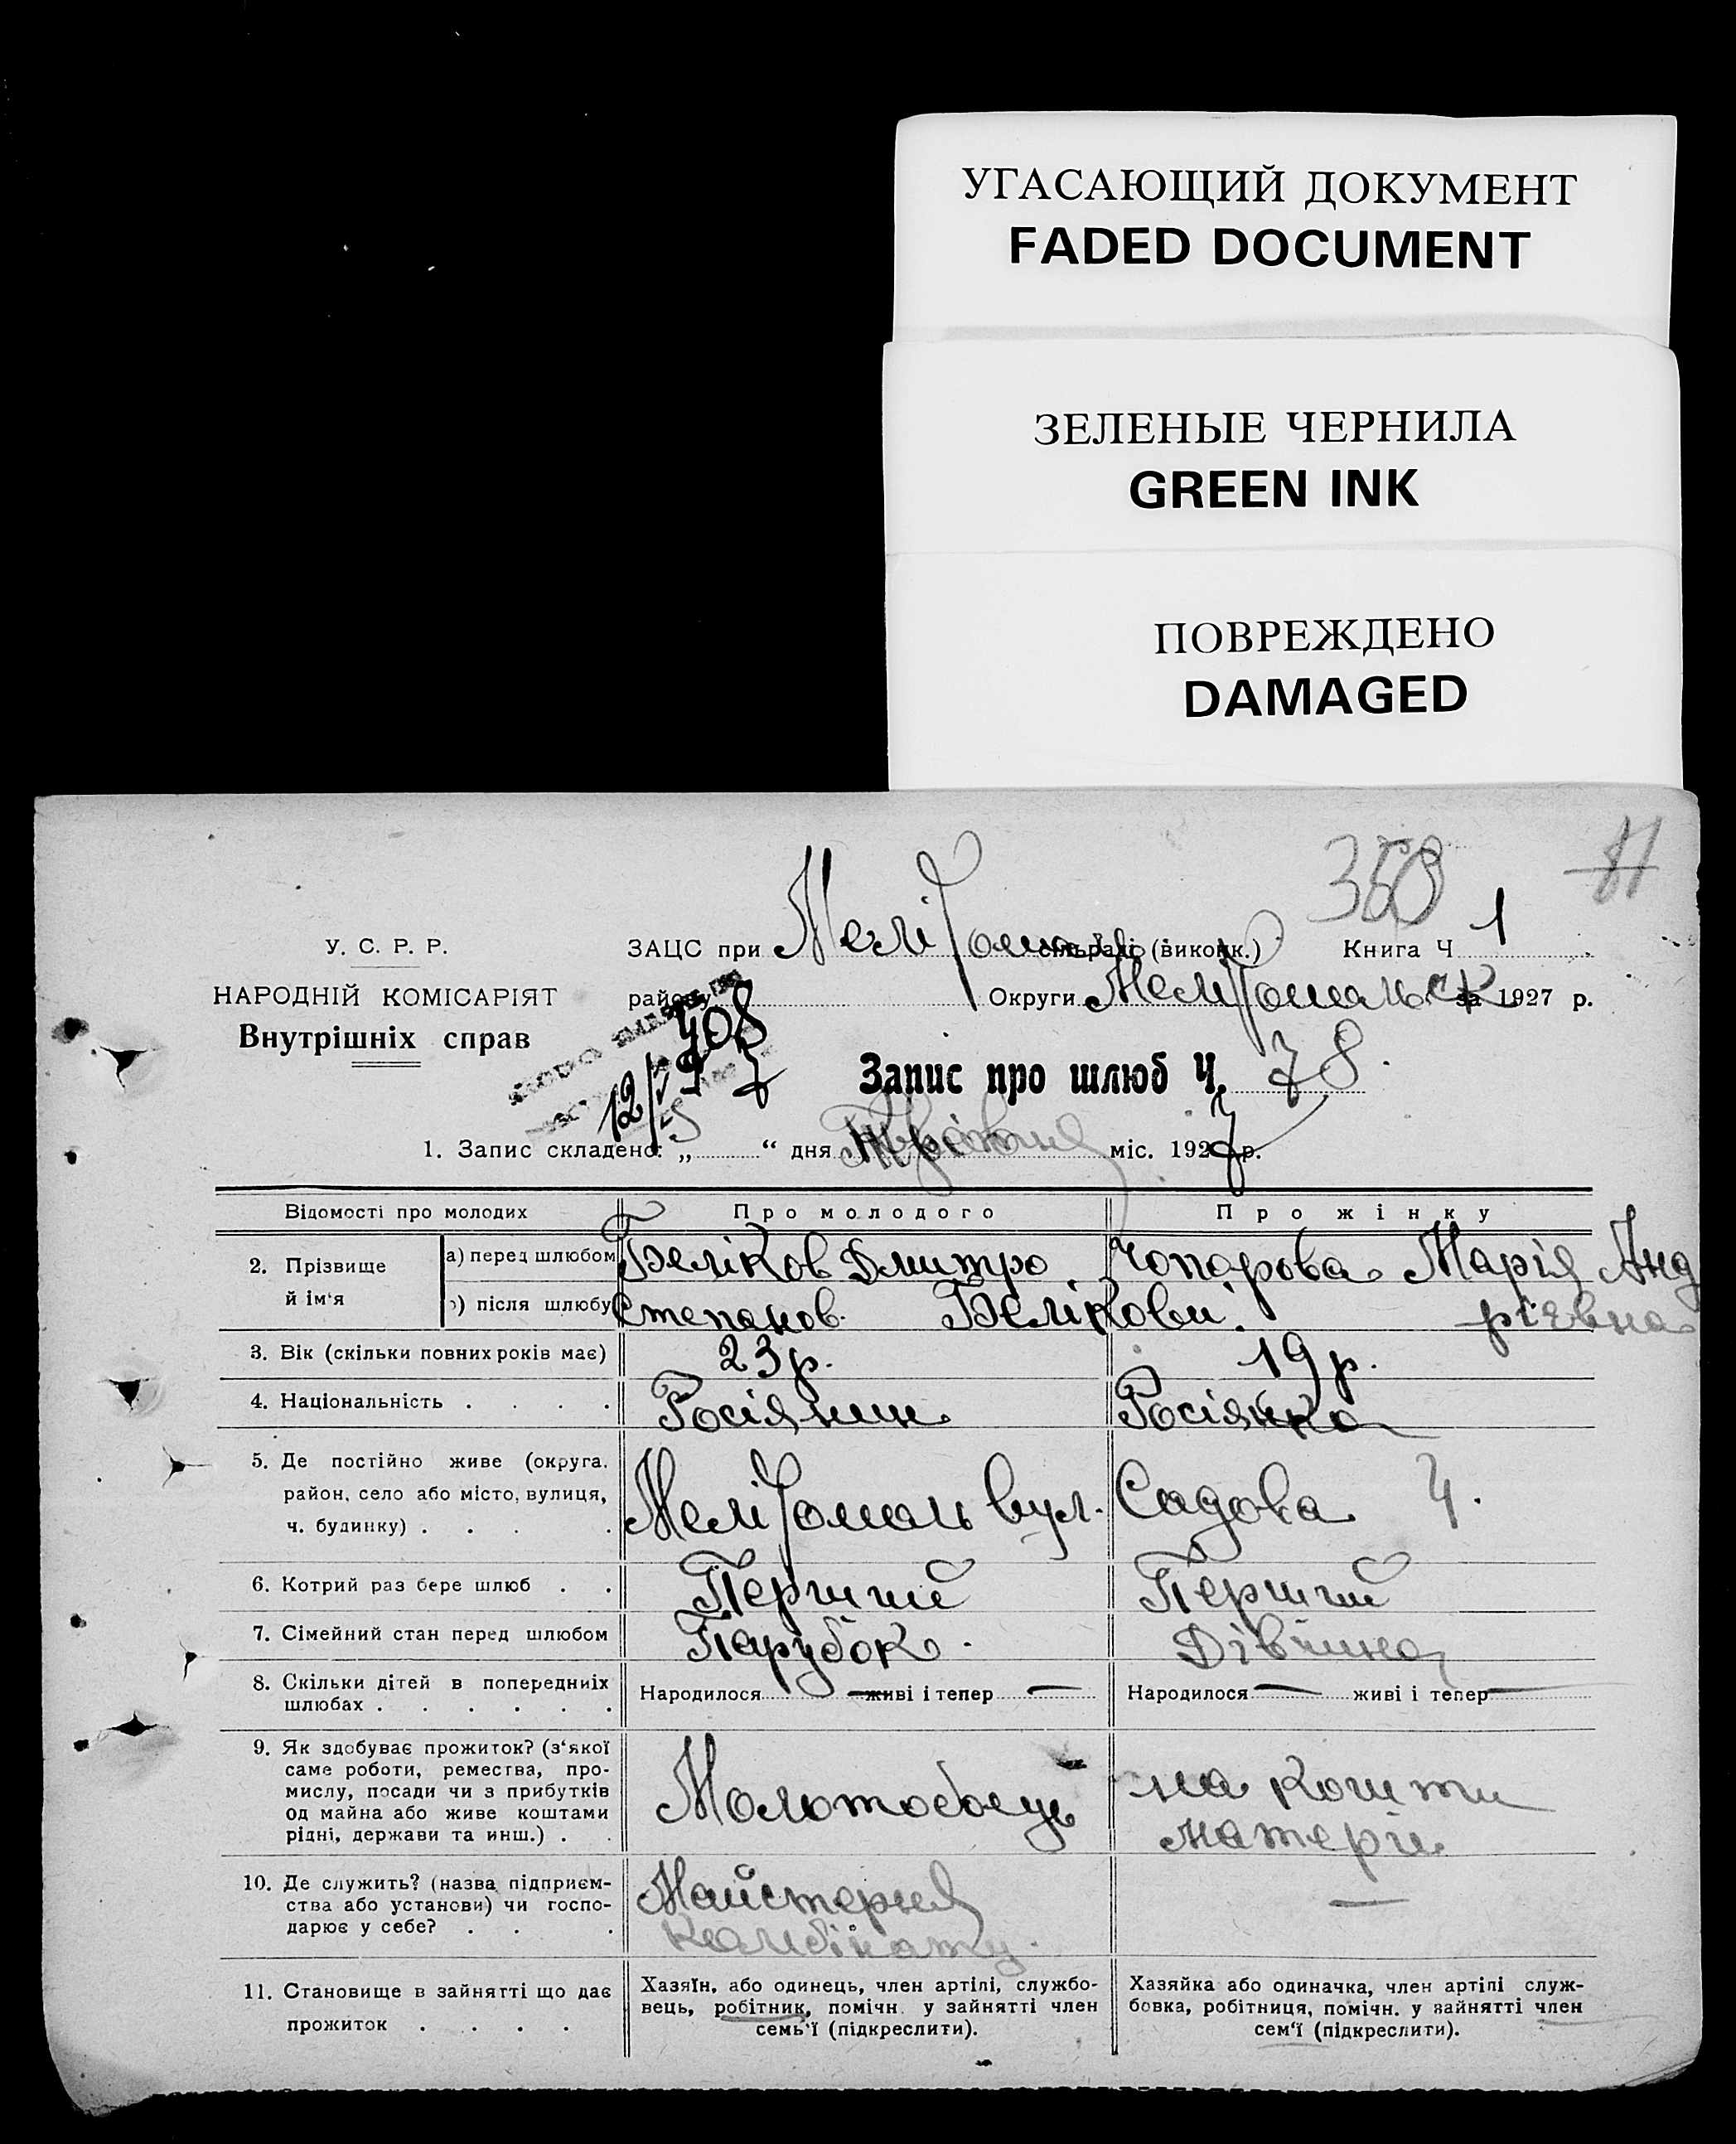 УГАСАЮЩИЙ ДОКУМЕНТ
FADED DOCUMENT
ЗЕЛЕНЫЕ ЧЕРНИЛА
GREEN INK
ПОВРЕЖДЕНО
DAMAGED
У. С. Р. Р.
НАРОДНІЙ КОМІСАРІЯТ
Внутрішніх справ
358
11
ЗАЦС при Меліто сільраді (виконк.) Книга Ч 1
району Округи Мелітопальск за 1927 р.
408
Запис про шлюб Ч. 78.
1. Запис складено: „ “ дня міс. 1927 р.
Відомості про молодих Про молодого Про жінку
2. Прізвище й ім‘я
а) перед шлюбом Беліков Дмитро Чопорова Марія Анд
) після шлюбу Степанов. Белікови. рієвна
3. Вік (скільки повних років має) 23 р. 19 р.
4. Національність . . . . Росіянин Росіянка
5. Де постійно живе (округа, район, село або місто, вулиця, ч. будинку) . . . Мелітопаль вул. Садова 4.
6. Котрий раз бере шлюб . . Перший Перший
7. Сімейний стан перед шлюбом Парубок. Дівчина
8. Скільки дітей в попередніх шлюбах . . . . . . Народилося — живі і тепер — Народилося — живі і тепер —
9. Як здобуває прожиток? (з‘якої
саме роботи, ремества, про-
мислу, посади чи з прибутків
од майна або живе коштами
рідні, держави та инш.) . .
Молотобоець
на кошти
матери
10. Де служить? (назва підприєм-
ства або установи) чи госпо-
дарює у себе? . . .
Майстерня
комбінату.
—
11. Становище в зайнятті що дає
прожиток . . . .
Хазяїн, або одинець, член артілі, службо-
вець, робітник, помічн. у зайнятті член
семь‘ї (підкреслити).
Хазяйка або одиначка, член артілі служ-
бовка, робітниця, помічн. у зайнятті член
сем‘ї (підкреслити).